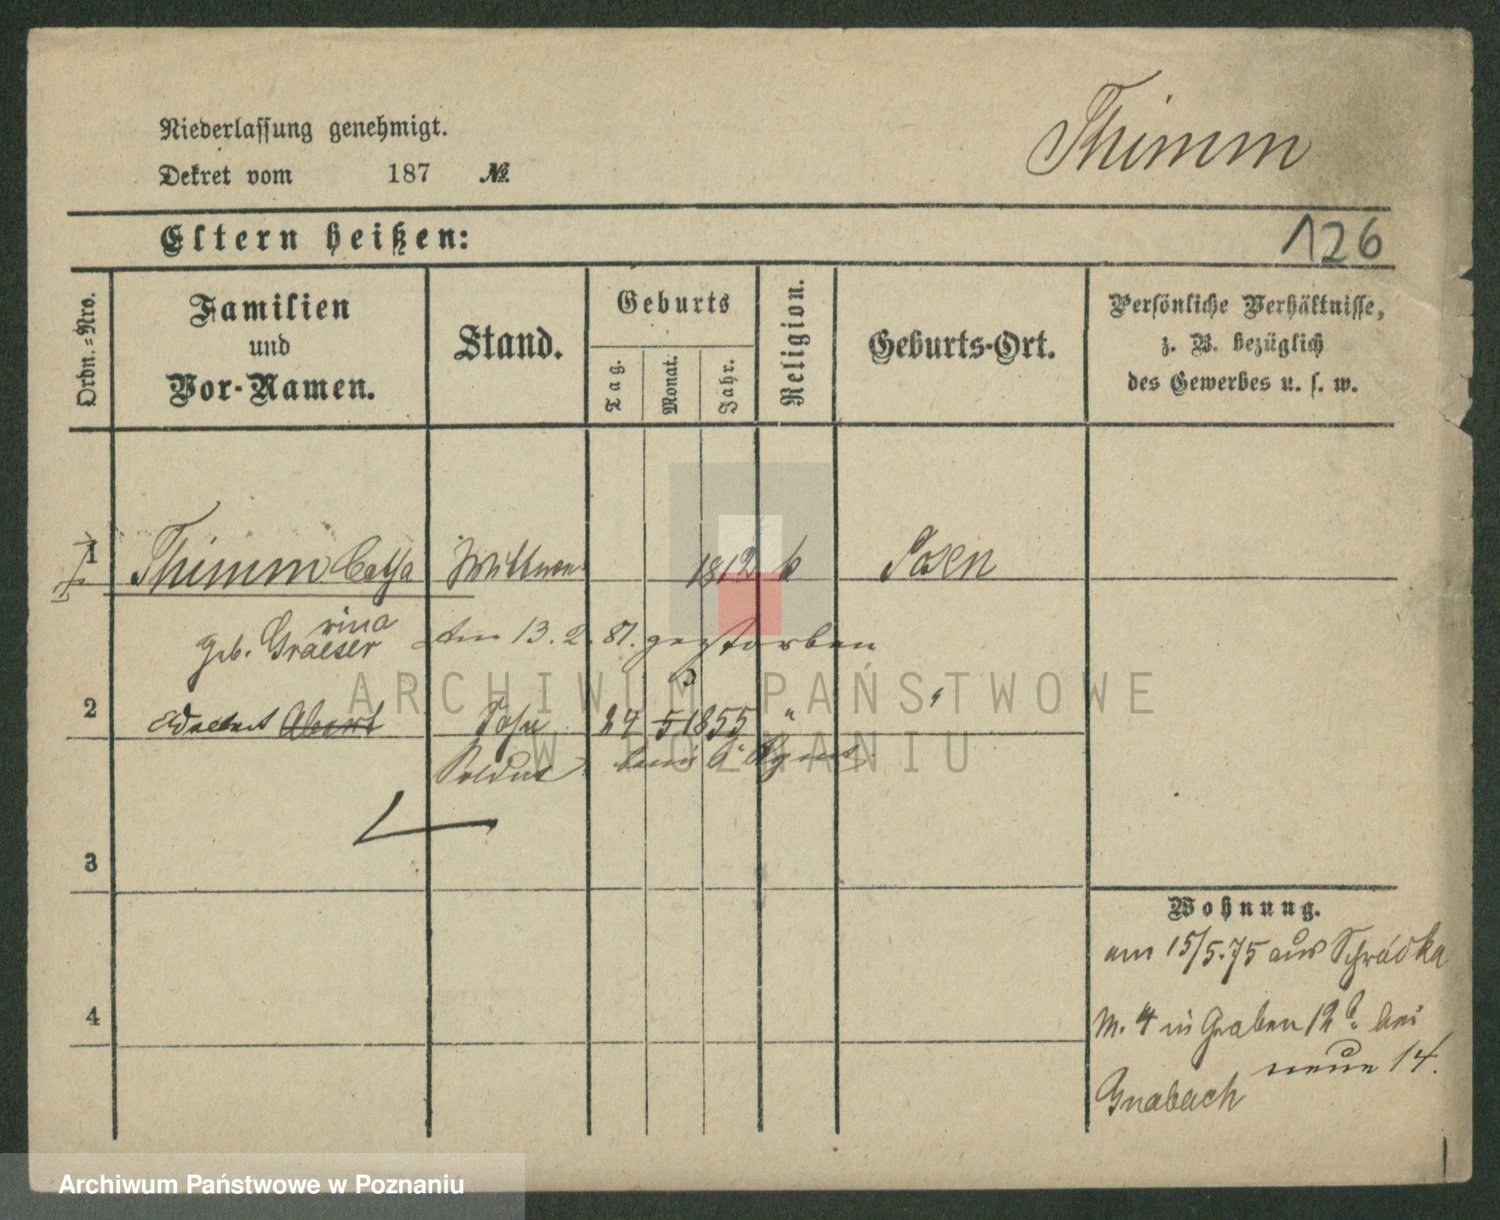 Thimm
Niederlassung genehmigt.
Dekret vom 187 №
Eltern heißen:
126
Ordn.-Nro.
Familien
und
Vor-Namen.
Stand.
Geburts
Tag.
Monat.
Jahr.
Religion.
Geburts-Ort.
Persönliche Verhältnisse,
z. B. bezüglich
des Gewerbes u. s. w.
1 Thimm Catha Wittwe 1812 k Posen
rina
geb. Graeser am 13. 2. 81. gestorben
3
2 Adalbert Albert Sohn 24 5 1855 " "
Soldat beim
3
4
Wohnung.
am 15/5.75 aus Schrodka
N. 4 in Graben 12 b. bei
neue 14.
Gnabach
ARCHIWUM PAŃSTWOWE
W POZNANIU
Archiwum Państwowe w Poznaniu